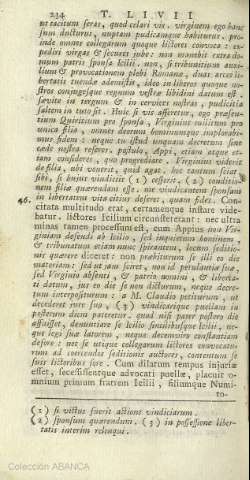 234 T. LIVII
ut tacitum ferat, quod celari vis. virginem ego hanc
sum ducturus, nuptam pudicamque habiturus. pro-
inde omnes collegarum quoque lictores convoca: ex-
pediri virgas & secures jube: non manebit extra do-
mum patris sponsa Icilii. non, si tribunitium auxi-
lium & provocationem plebi Romanæ, duas arces li-
bertatis tuendæ ademistis, ideo in liberos quoque no-
stros conjugesque regnum vestræ libidini datum est.
sævite in tergum & in cervices nostras, pudicitia
saltem in tuto sit. Huic si vis afferetur, ego præsen-
tium Quiritium pro sponsa, Virginius militum pro
unica filia, omnes deorum hominumque implorabi-
mus fidem: neque tu istud unquam decretum sine
cæde nostra referes. postulo, Appi, etiam atque et-
iam consideres, quo progrediare. Virginius viderit
de filia, ubi venerit, quid agat. hoc tantum sciat,
sibi, si hujus vindiciis (1) cesserit, (2) conditio-
nem filiæ quærendam esse. me vindicantem sponsam
in libertatem vita citius deseret, quam fides. Con-
46. citata multitudo erat, certamenque instare vide-
batur. lictores Icilium circumsteterant: nec ultra
minas tamen processum est, cum Appius non Vir-
giniam defendi ab Icilio, sed inquietum hominem,
& tribunatum etiam nunc spirantem, locum seditio-
nis quærere diceret: non præbiturum se illi eo die
materiam: sed ut jam sciret, non id petulantiæ suæ,
sed Virginio absenti, & patrio nomini, & liberta-
ti datum, jus eo die se non dicturum, neque decre-
tum interpositurum: a M. Claudio petiturum, ut
decederet jure suo, (3) vindicarique puellam in
posterum diem pateretur. quod nisi pater postero die
affuisset, denuntiare se Icilio similibusque Icilii, ne-
que legi suæ latorem, neque decemviro constantiam
defore: nec se utique collegarum lictores convocatu-
rum ad coercendos seditionis auctores, contentum se
suis lictoribus fore. Cum dilatum tempus injuriæ
esset, secessissentque advocati puellæ, placuit o-
mnium primum fratrem Icilii, filiumque Numi-
to-
(1) si victus fuerit actione vindiciarum.
(2) sponsum quærendum. (3) in possessione liber-
tatis interim relinque.
Colección ABANCA